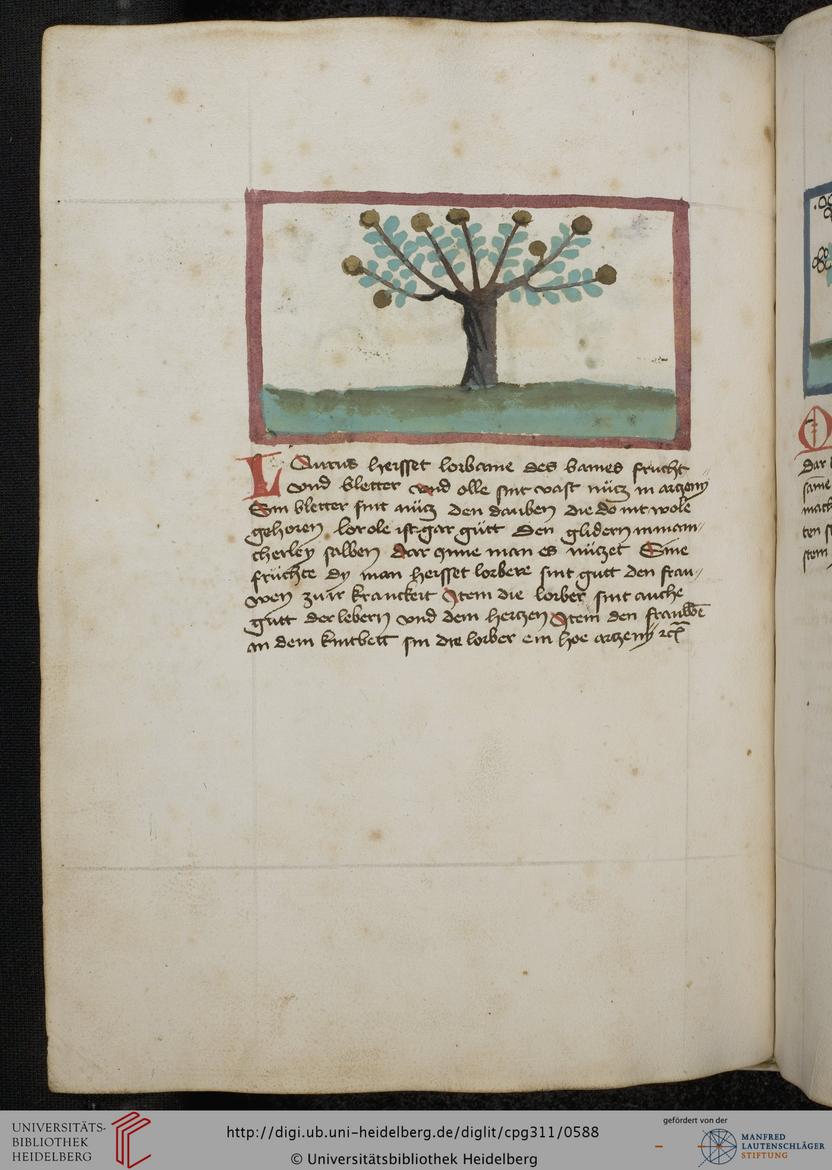 Laurus heisset lorbame des bames frucht
vnd bletter vnd olle sint vast nücz in arczeny
Sin bletter sint nücz den dauben die do nit wole
gehoren lorole ist gar gütt den glidern in mani
cherley salben dar jnne man es nüczet Sine
früchte dy man heisset lorbere sint gutt den frau
wen zu ir kranckeit Item die lorber sint auche
gutt der lebern vnd dem herczen Item den frauwen
in dem kintbett sin die lorber ein hoe arczeny
Dar
same
mach
ten s
stem
UNIVERSITÄTS-
BIBLIOTHEK
HEIDELBERG
http://digi.ub.uni-heidelberg.de/diglit/cpg311/0588
© Universitätsbibliothek Heidelberg
gefördert von der
MANFRED
LAUTENSCHLÄGER
STIFTUNG